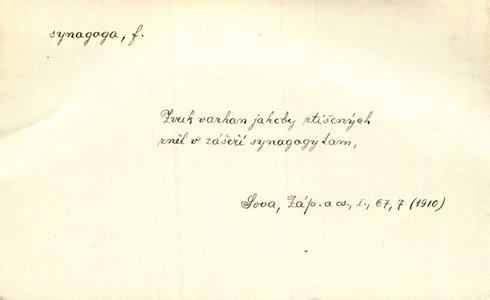 synagoga, f.
Zvuk varhan jakoby ztišených
zněl v zášeří synagogy tam,
Sova, Záp. a os., I., 67, 7 (1910)